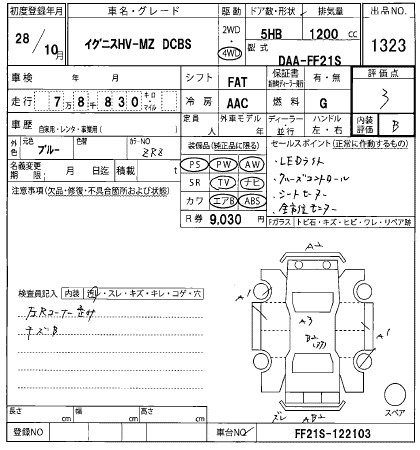 初度登録年月 車名・グレード 駆動 ドア数・形状 排気量 出品NO
28/10月 イグニスHV-MZ DCBS 2WD・4WD 5HB 1200 cc 1323
型式 DAA-FF21S
車検 年 月 シフト FAT 保証書 有・無 評価点
走行 7万8千830 キロ・マイル 冷房 AAC 燃料 G 3
車歴 自家用・レンタ・事業用( ) 定員 人 外車モデル 年 ディーラー・並行 ハンドル 左・右 内装評価 B
外色 ブルー 色替 カラーNO ZRS
装備品(純正品に限る) セールスポイント(正常に作動するもの)
名義変更期限 月 日迄 積載 t
PS PW AW ・LEDライト
SR TV ナビ ・クルーズコントロール
カワ エアB ABS ・シートヒーター
注意事項(欠品・修復・不具合箇所および状態)
R券 9,030 円 Fガラス トビ石・キズ・ヒビ・ワレ・リペア跡
A2
検査員記入 内装 汚レ・スレ・キズ・キレ・コゲ・穴
A1
A3
A1
キズB
B2
スレ AB2
スペア
長さ cm 幅 cm 高さ cm
登録NO 車台NO FF21S-122103